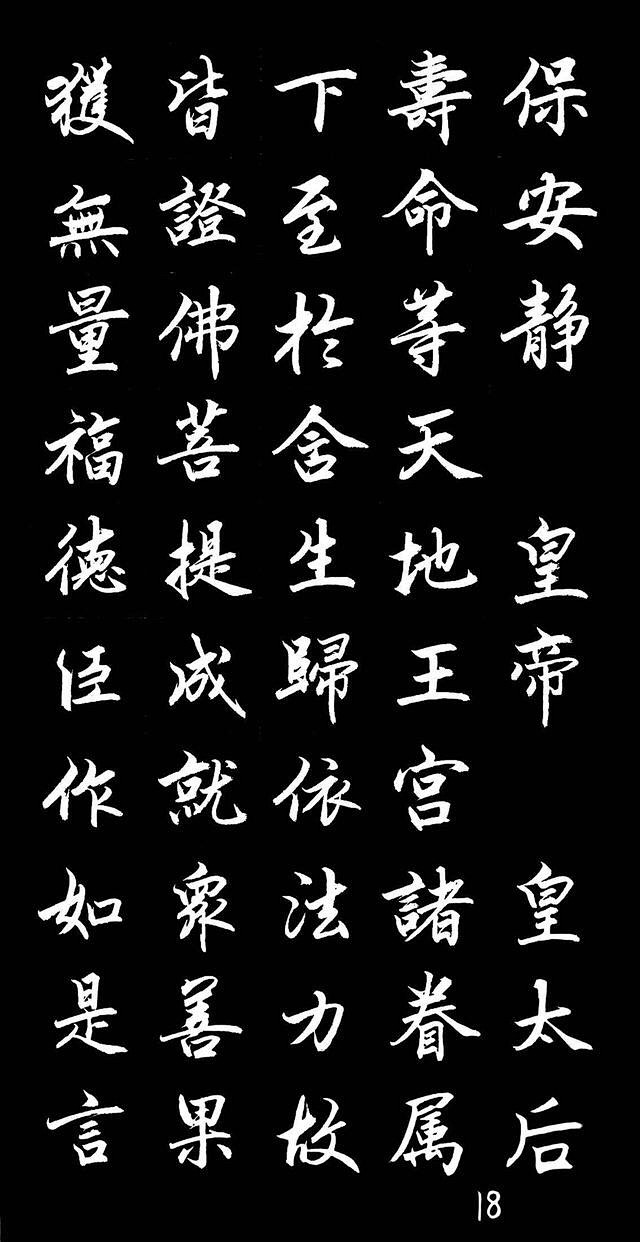 保安静　皇帝　皇太后
壽命等天地王宫諸眷属
下至於含生歸依法力故
皆證佛菩提成就衆善果
獲無量福德臣作如是言
18